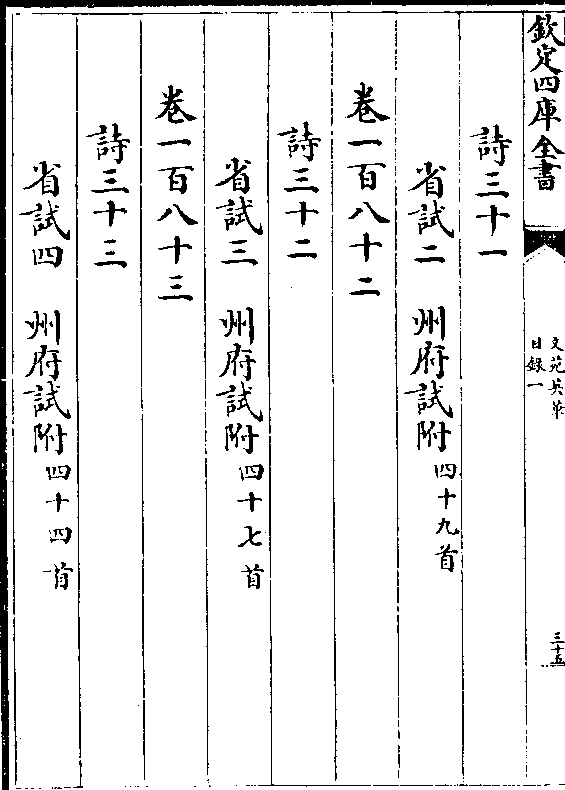 欽定四庫全書
文苑英華
目録一
三十五
詩三十一
省試二 州府試附四十九首
卷一百八十二
詩三十二
省試三 州府試附四十七首
卷一百八十三
詩三十三
省試四 州府試附四十四首